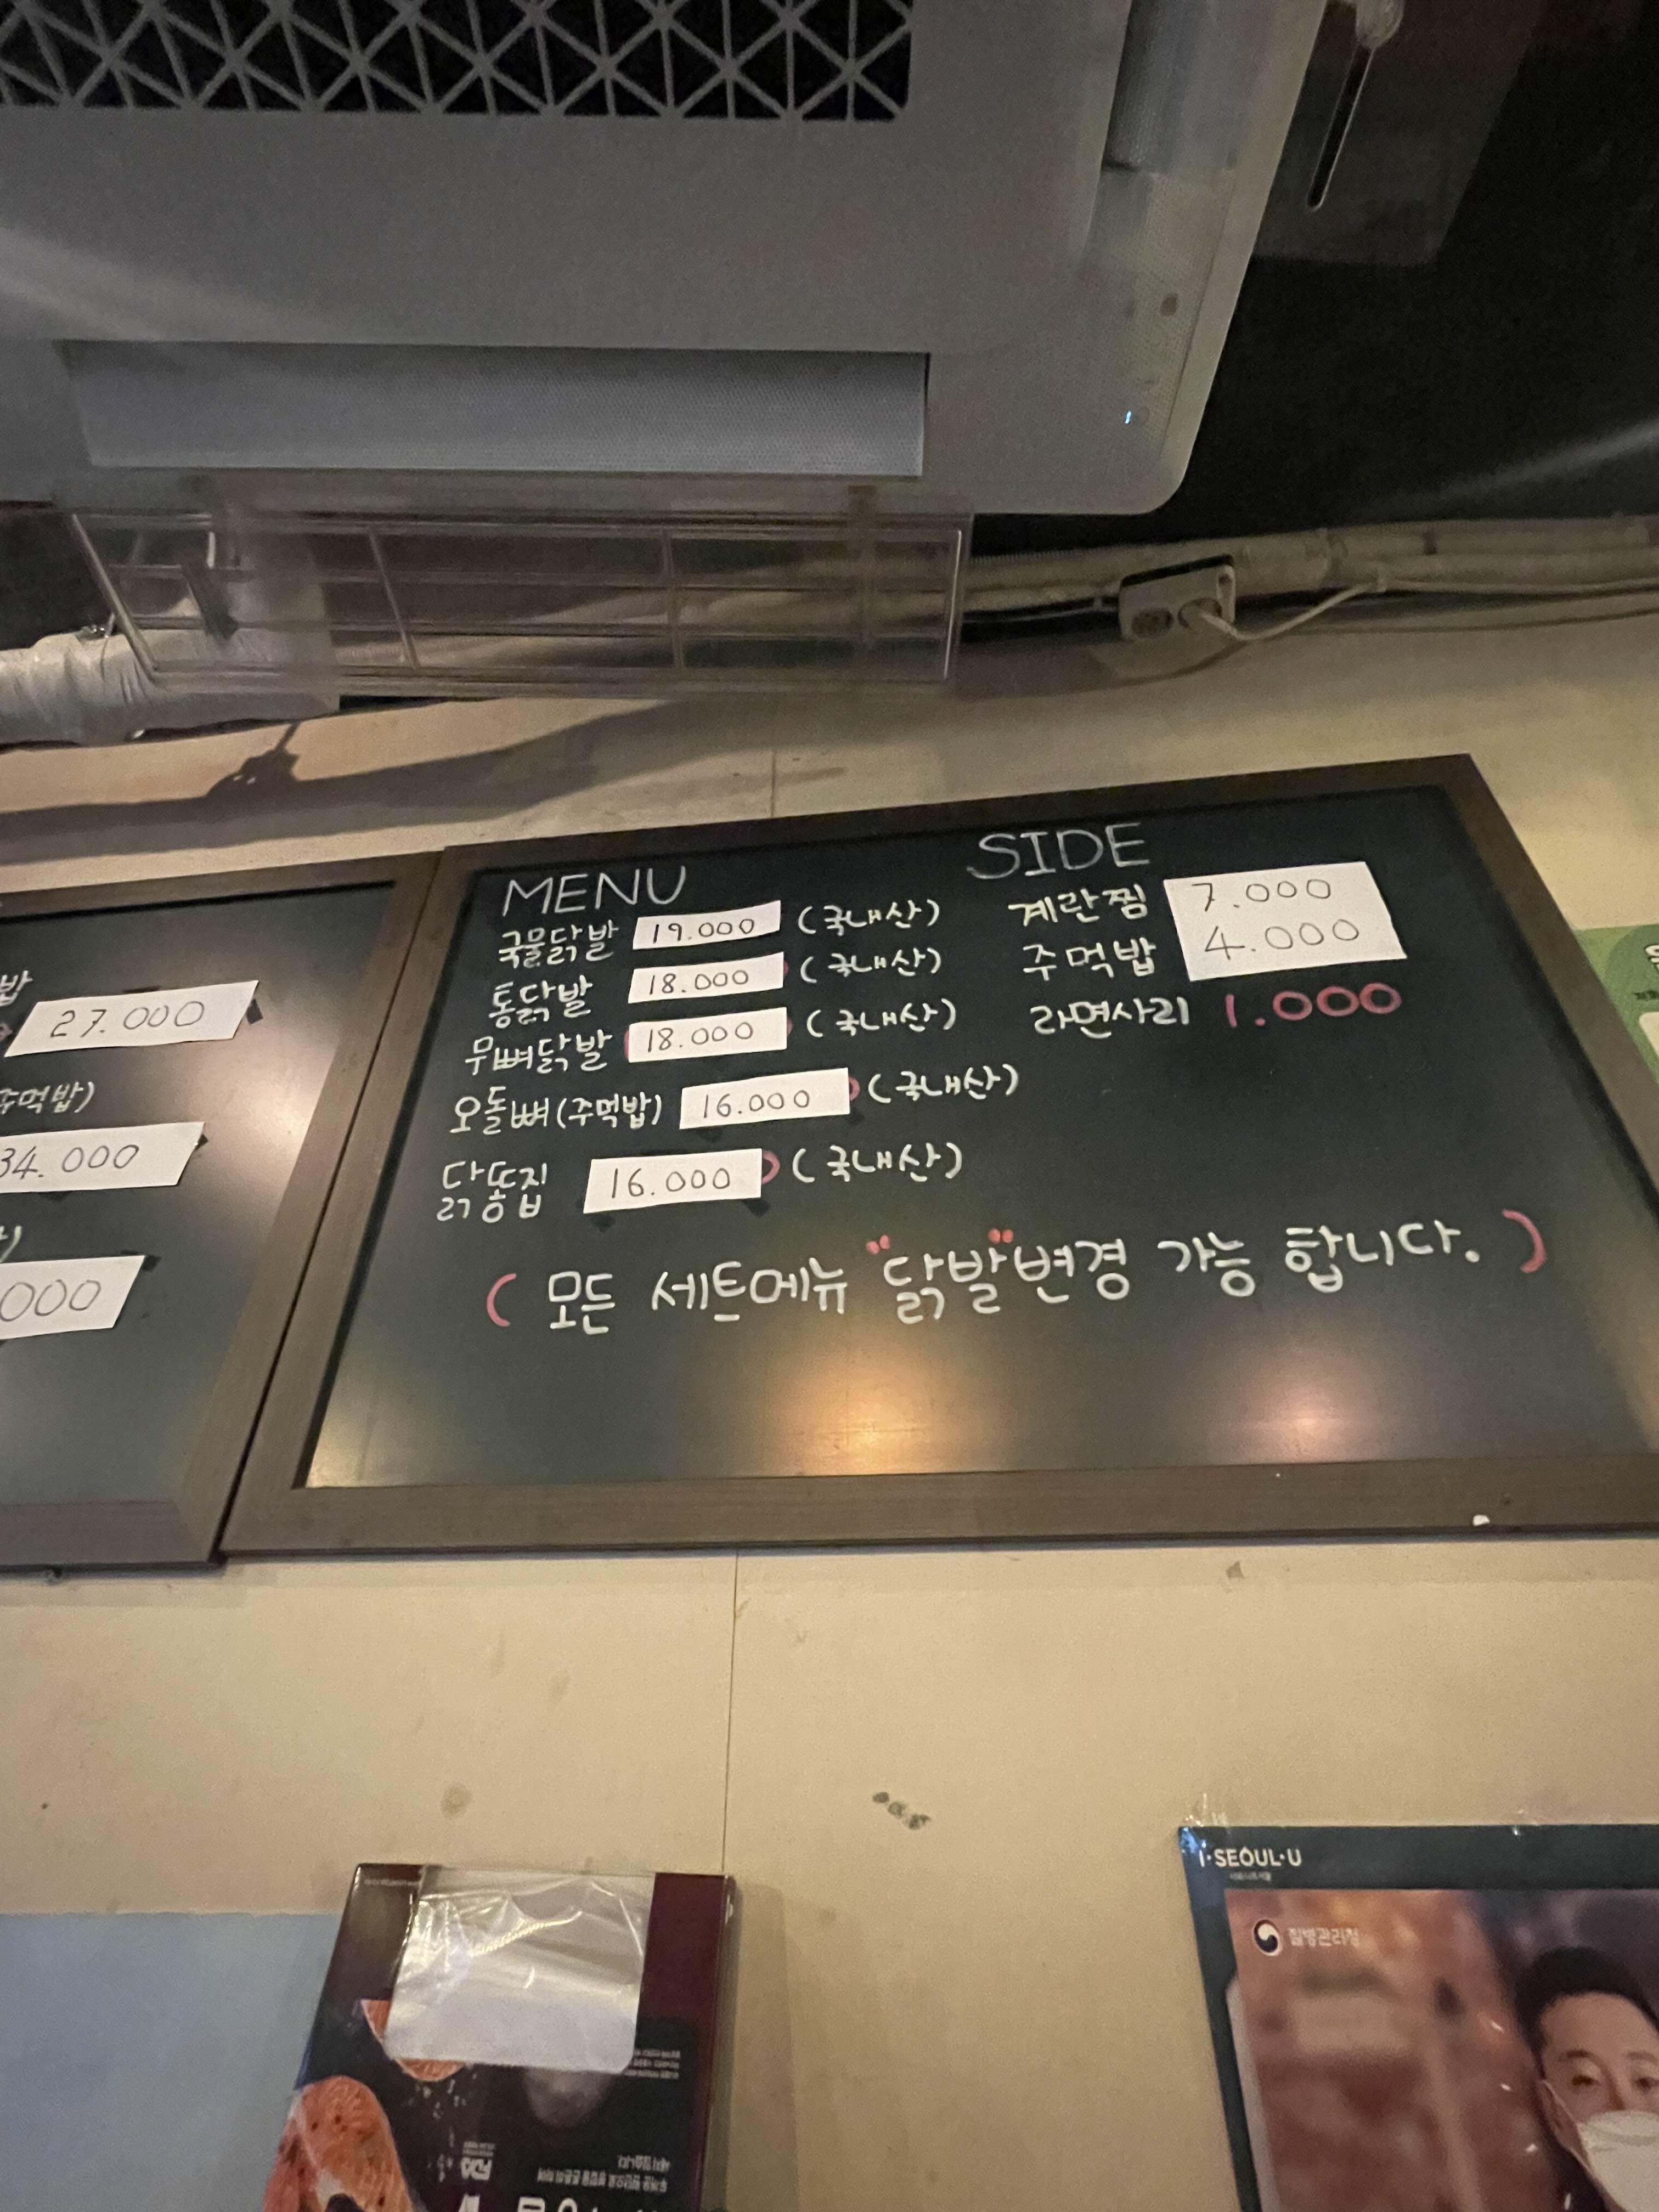 밥
27.000
주먹밥)
34.000
000
MENU
국물닭발 19.000 (국내산)
통닭발 18.000 (국내산)
무뼈닭발 18.000 (국내산)
오돌뼈(주먹밥) 16.000 (국내산)
닭똥집 16.000 (국내산)
SIDE
계란찜 7.000
주먹밥 4.000
라면사리 1.000
( 모든 세트메뉴 "닭발"변경 가능 합니다. )
I·SEOUL·U
질병관리청